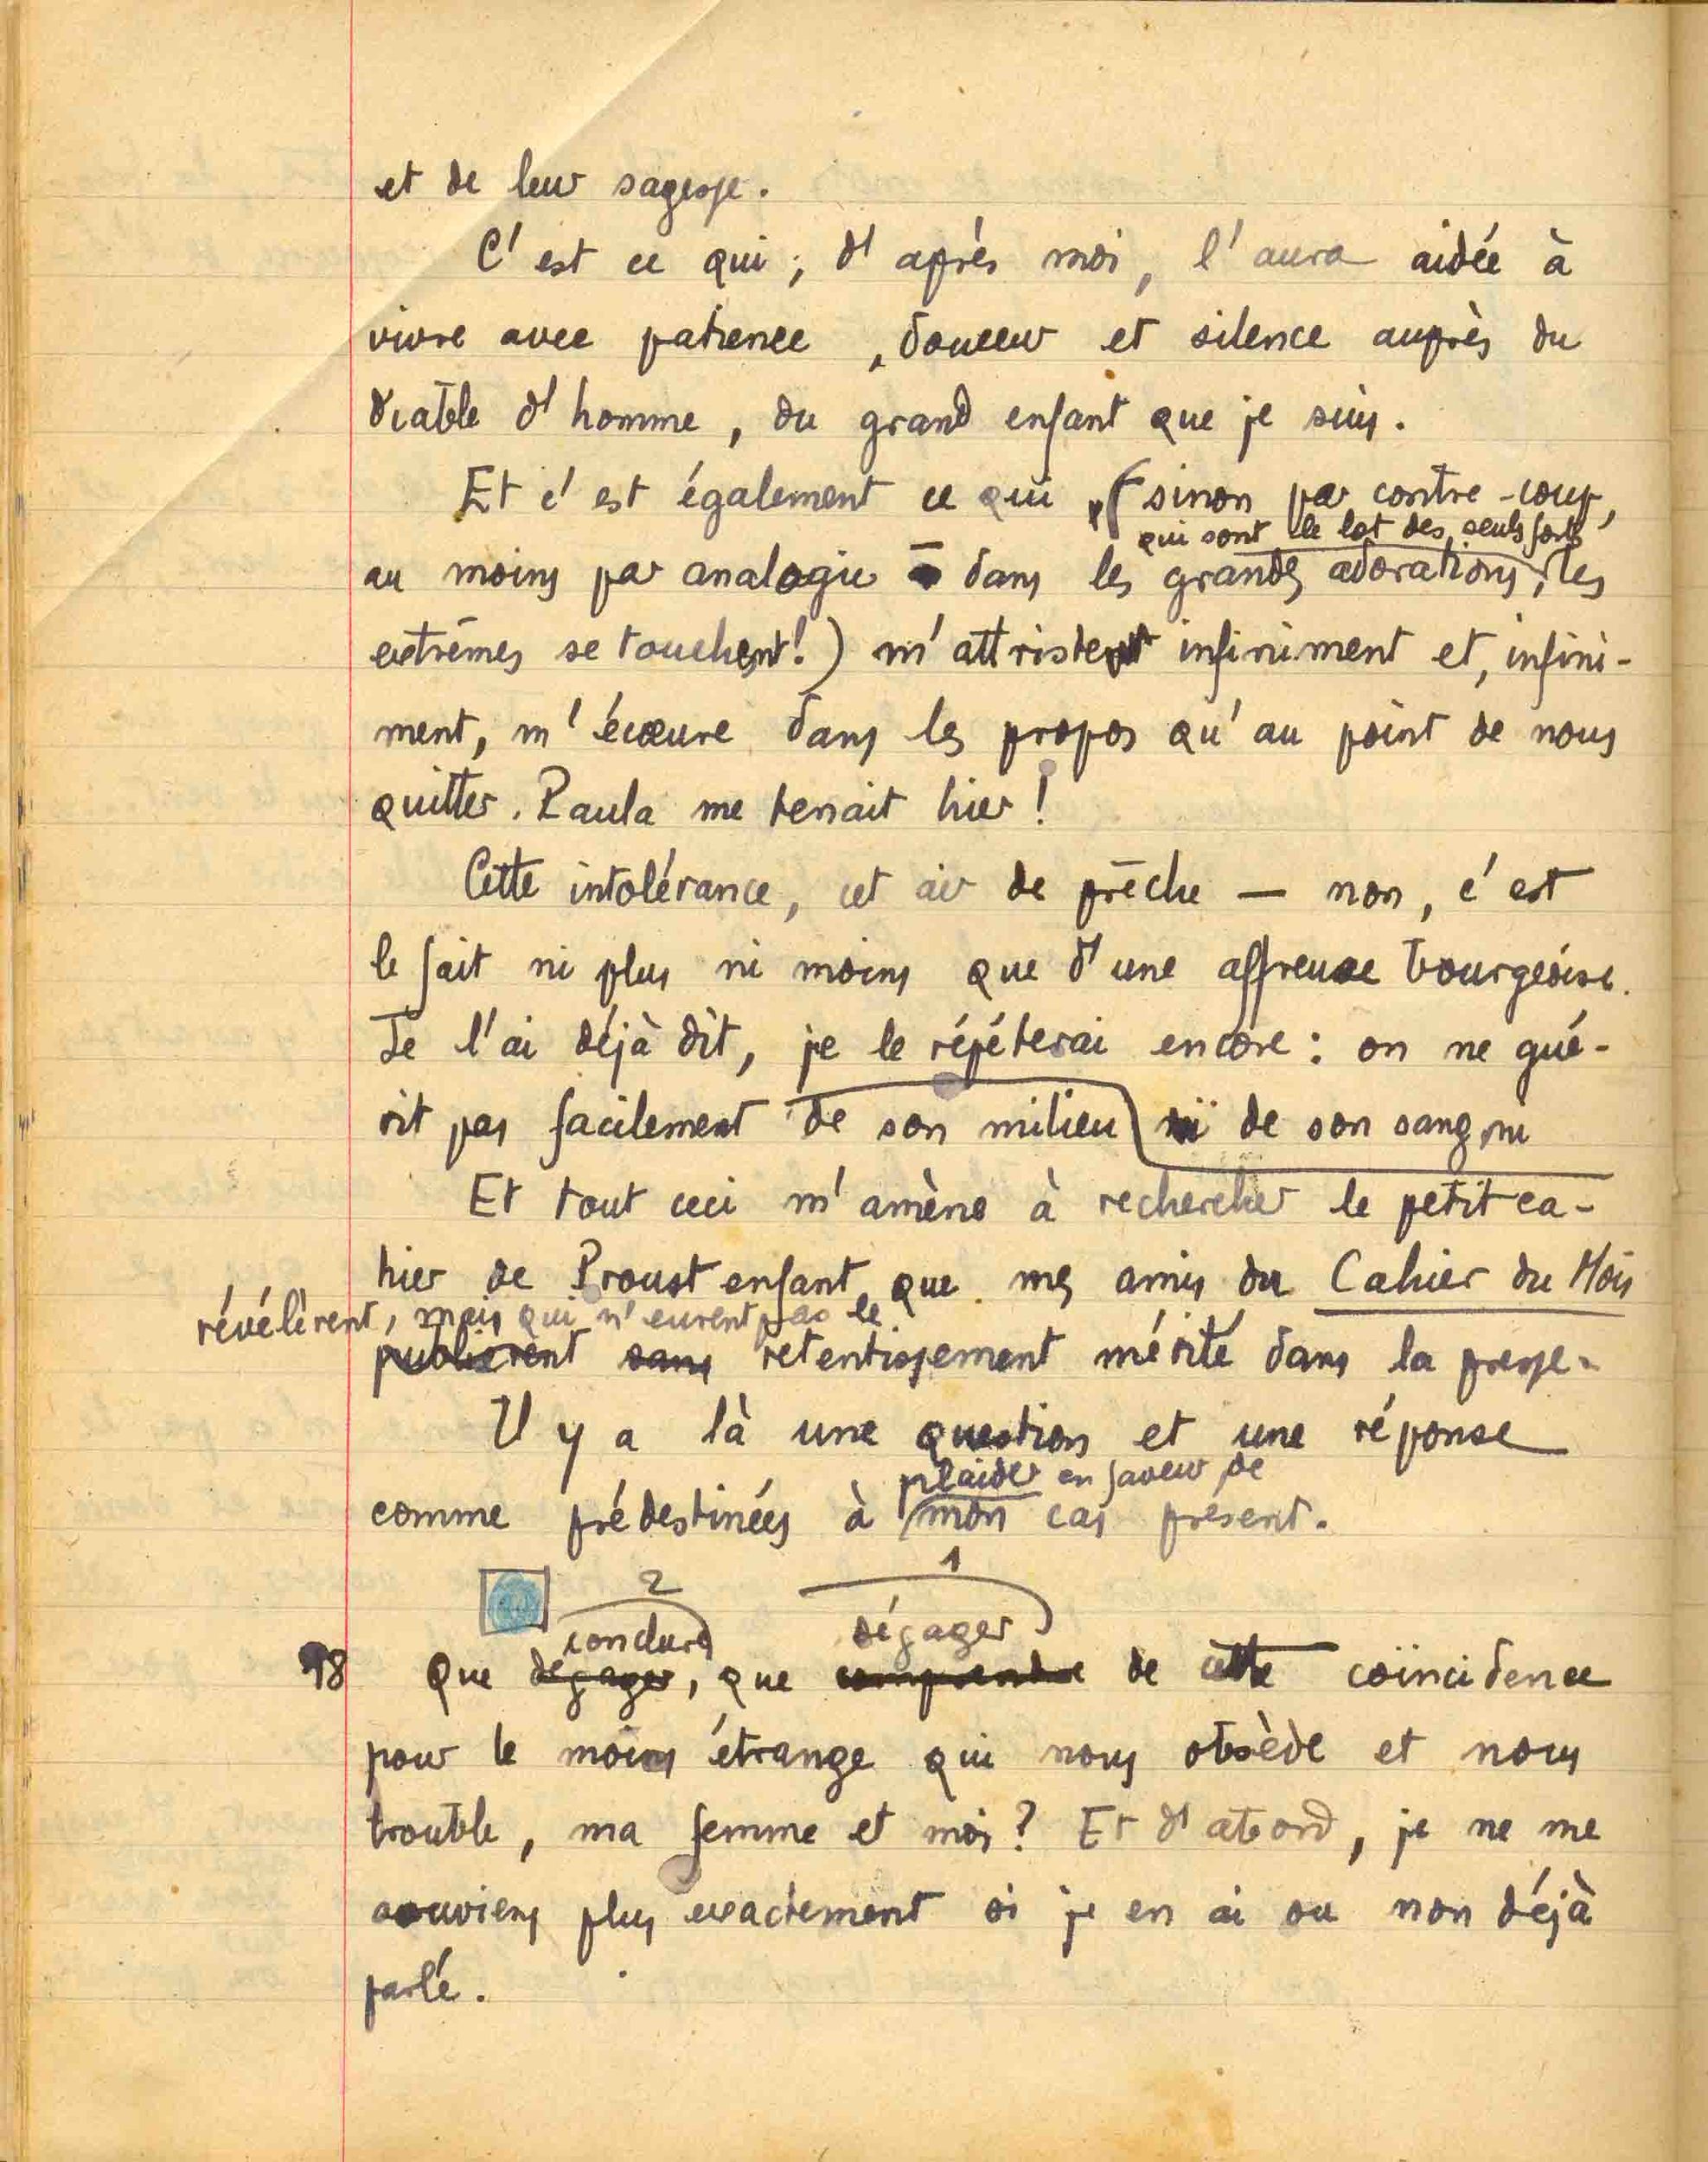 et de leur sagesse.
C'est ce qui, d'après moi, l'aura aidée à
vivre avec patience, douceur et silence auprès du
diable d'homme, du grand enfant que je suis.
Et c'est également ce qui (sinon par contre-coup,
qui sont le lot des seuls forts
au moins par analogie – dans les grandes adorations, les
extrêmes se touchent!) m'attriste infiniment et, infini-
ment, m'écœure dans les propos qu'au point de nous
quitter, Paula me tenait hier!
Cette intolérance, cet air de prêche — non, c'est
le fait ni plus ni moins que d'une affreuse bourgeoise.
Je l'ai déjà dit, je le répéterai encore : on ne gué-
rit pas facilement de son milieu ni de son sang ni
Et tout ceci m'amène à rechercher le petit ca-
hier de Proust enfant que mes amis du Cahier du Mois
révélèrent, mais qui n'eurent pas le
publièrent sans retentissement mérité dans la presse.
Il y a là une question et une réponse
plaider en faveur de
comme prédestinées à mon cas présent.
2 1
conclure dégager
98 Que dégager, que comprendre de cette coïncidence
pour le moins étrange qui nous obsède et nous
trouble, ma femme et moi? Et d'abord, je ne me
souviens plus exactement si je en ai ou non déjà
parlé.